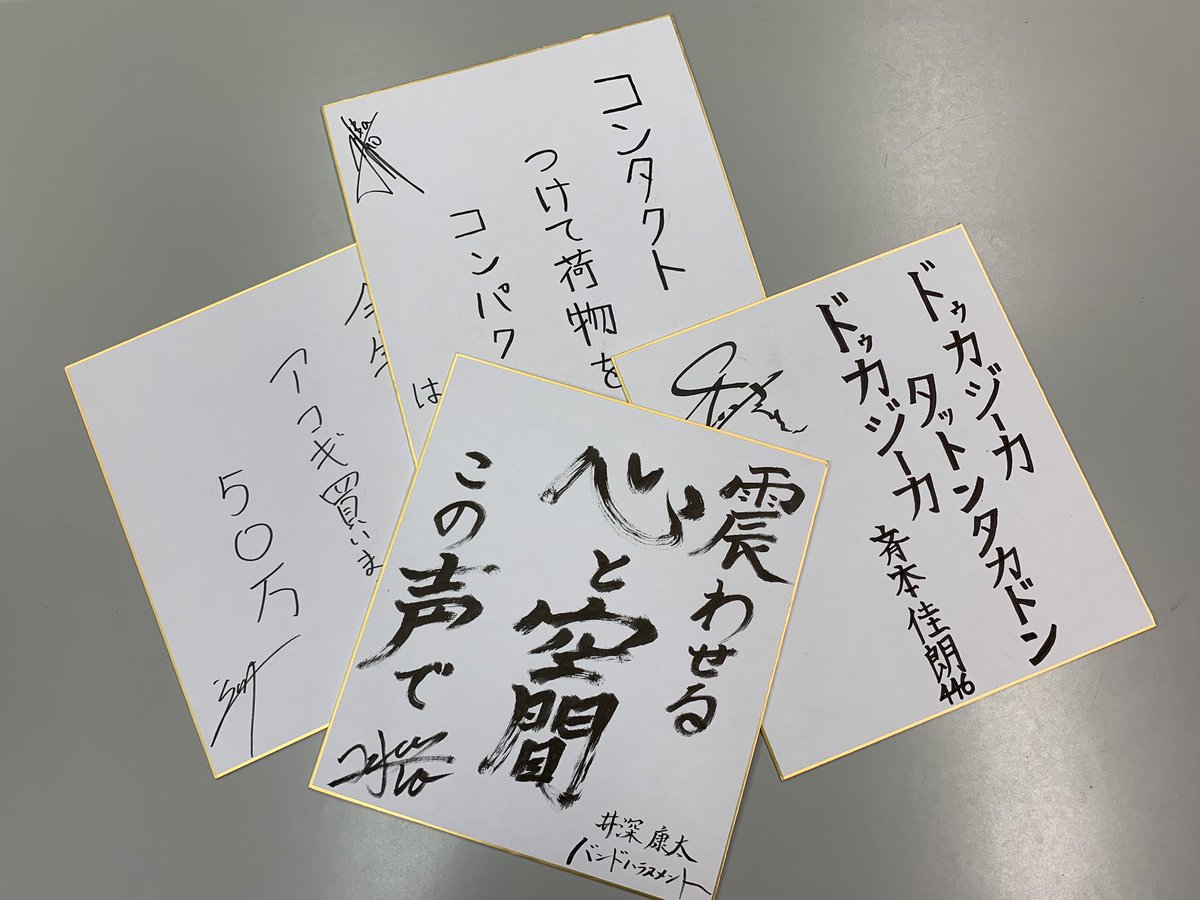 コンタクト
つけて荷物を
コンパク
は
ドゥカジーカ
タットンタカドン
ドゥカジーカ
斉本佳朗
446
アコギ買いま
50万
震わせる
心と空間
この声で
井深康太
バンドハラスメント